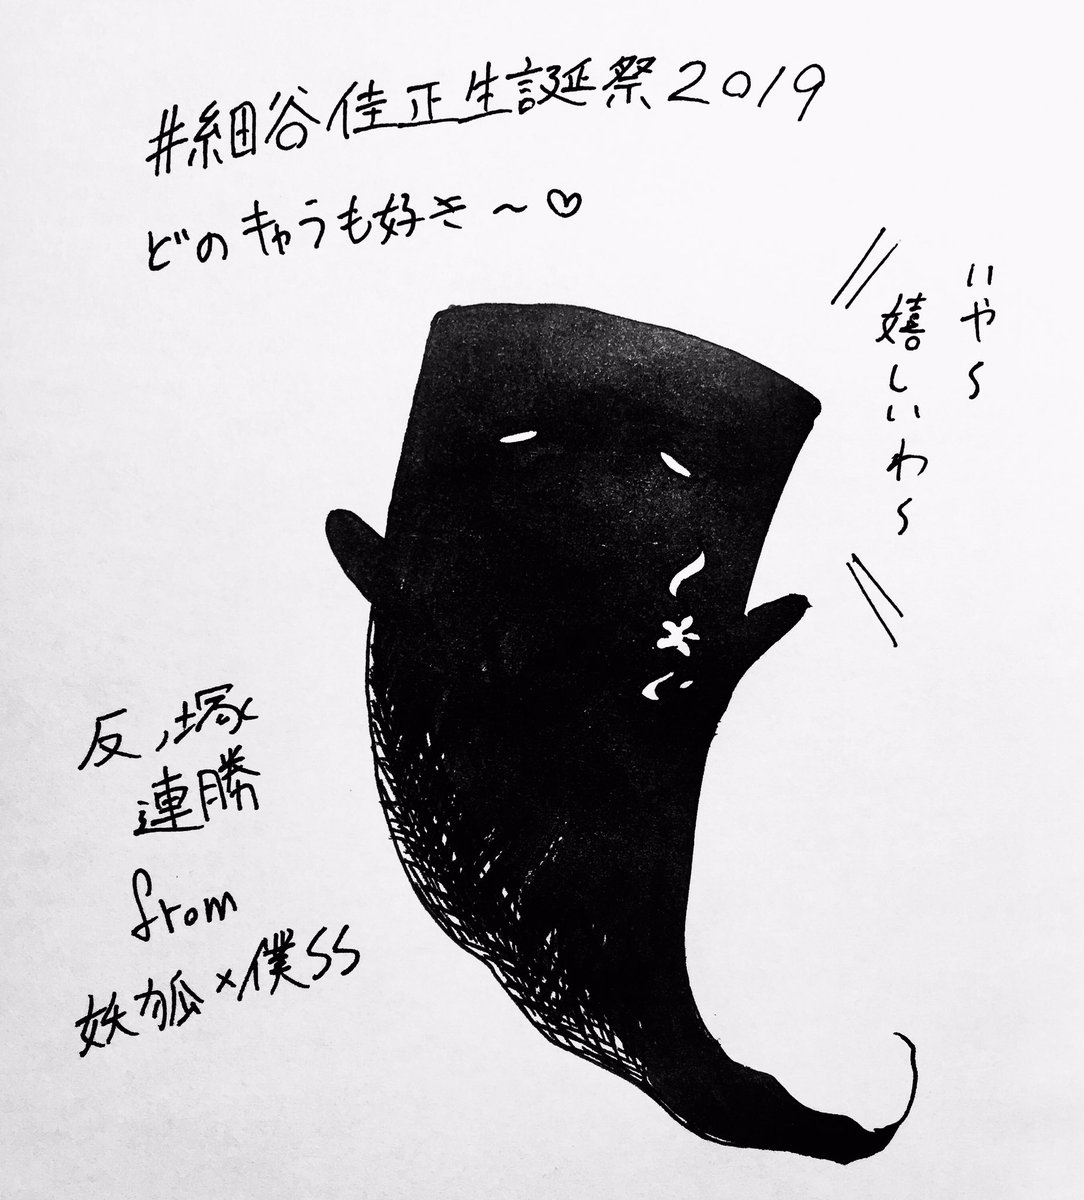 #細谷佳正生誕祭2019
どのキャラも好き〜♡
いや〜
嬉しいわ〜
反ノ塚
連勝
from
妖狐×僕SS